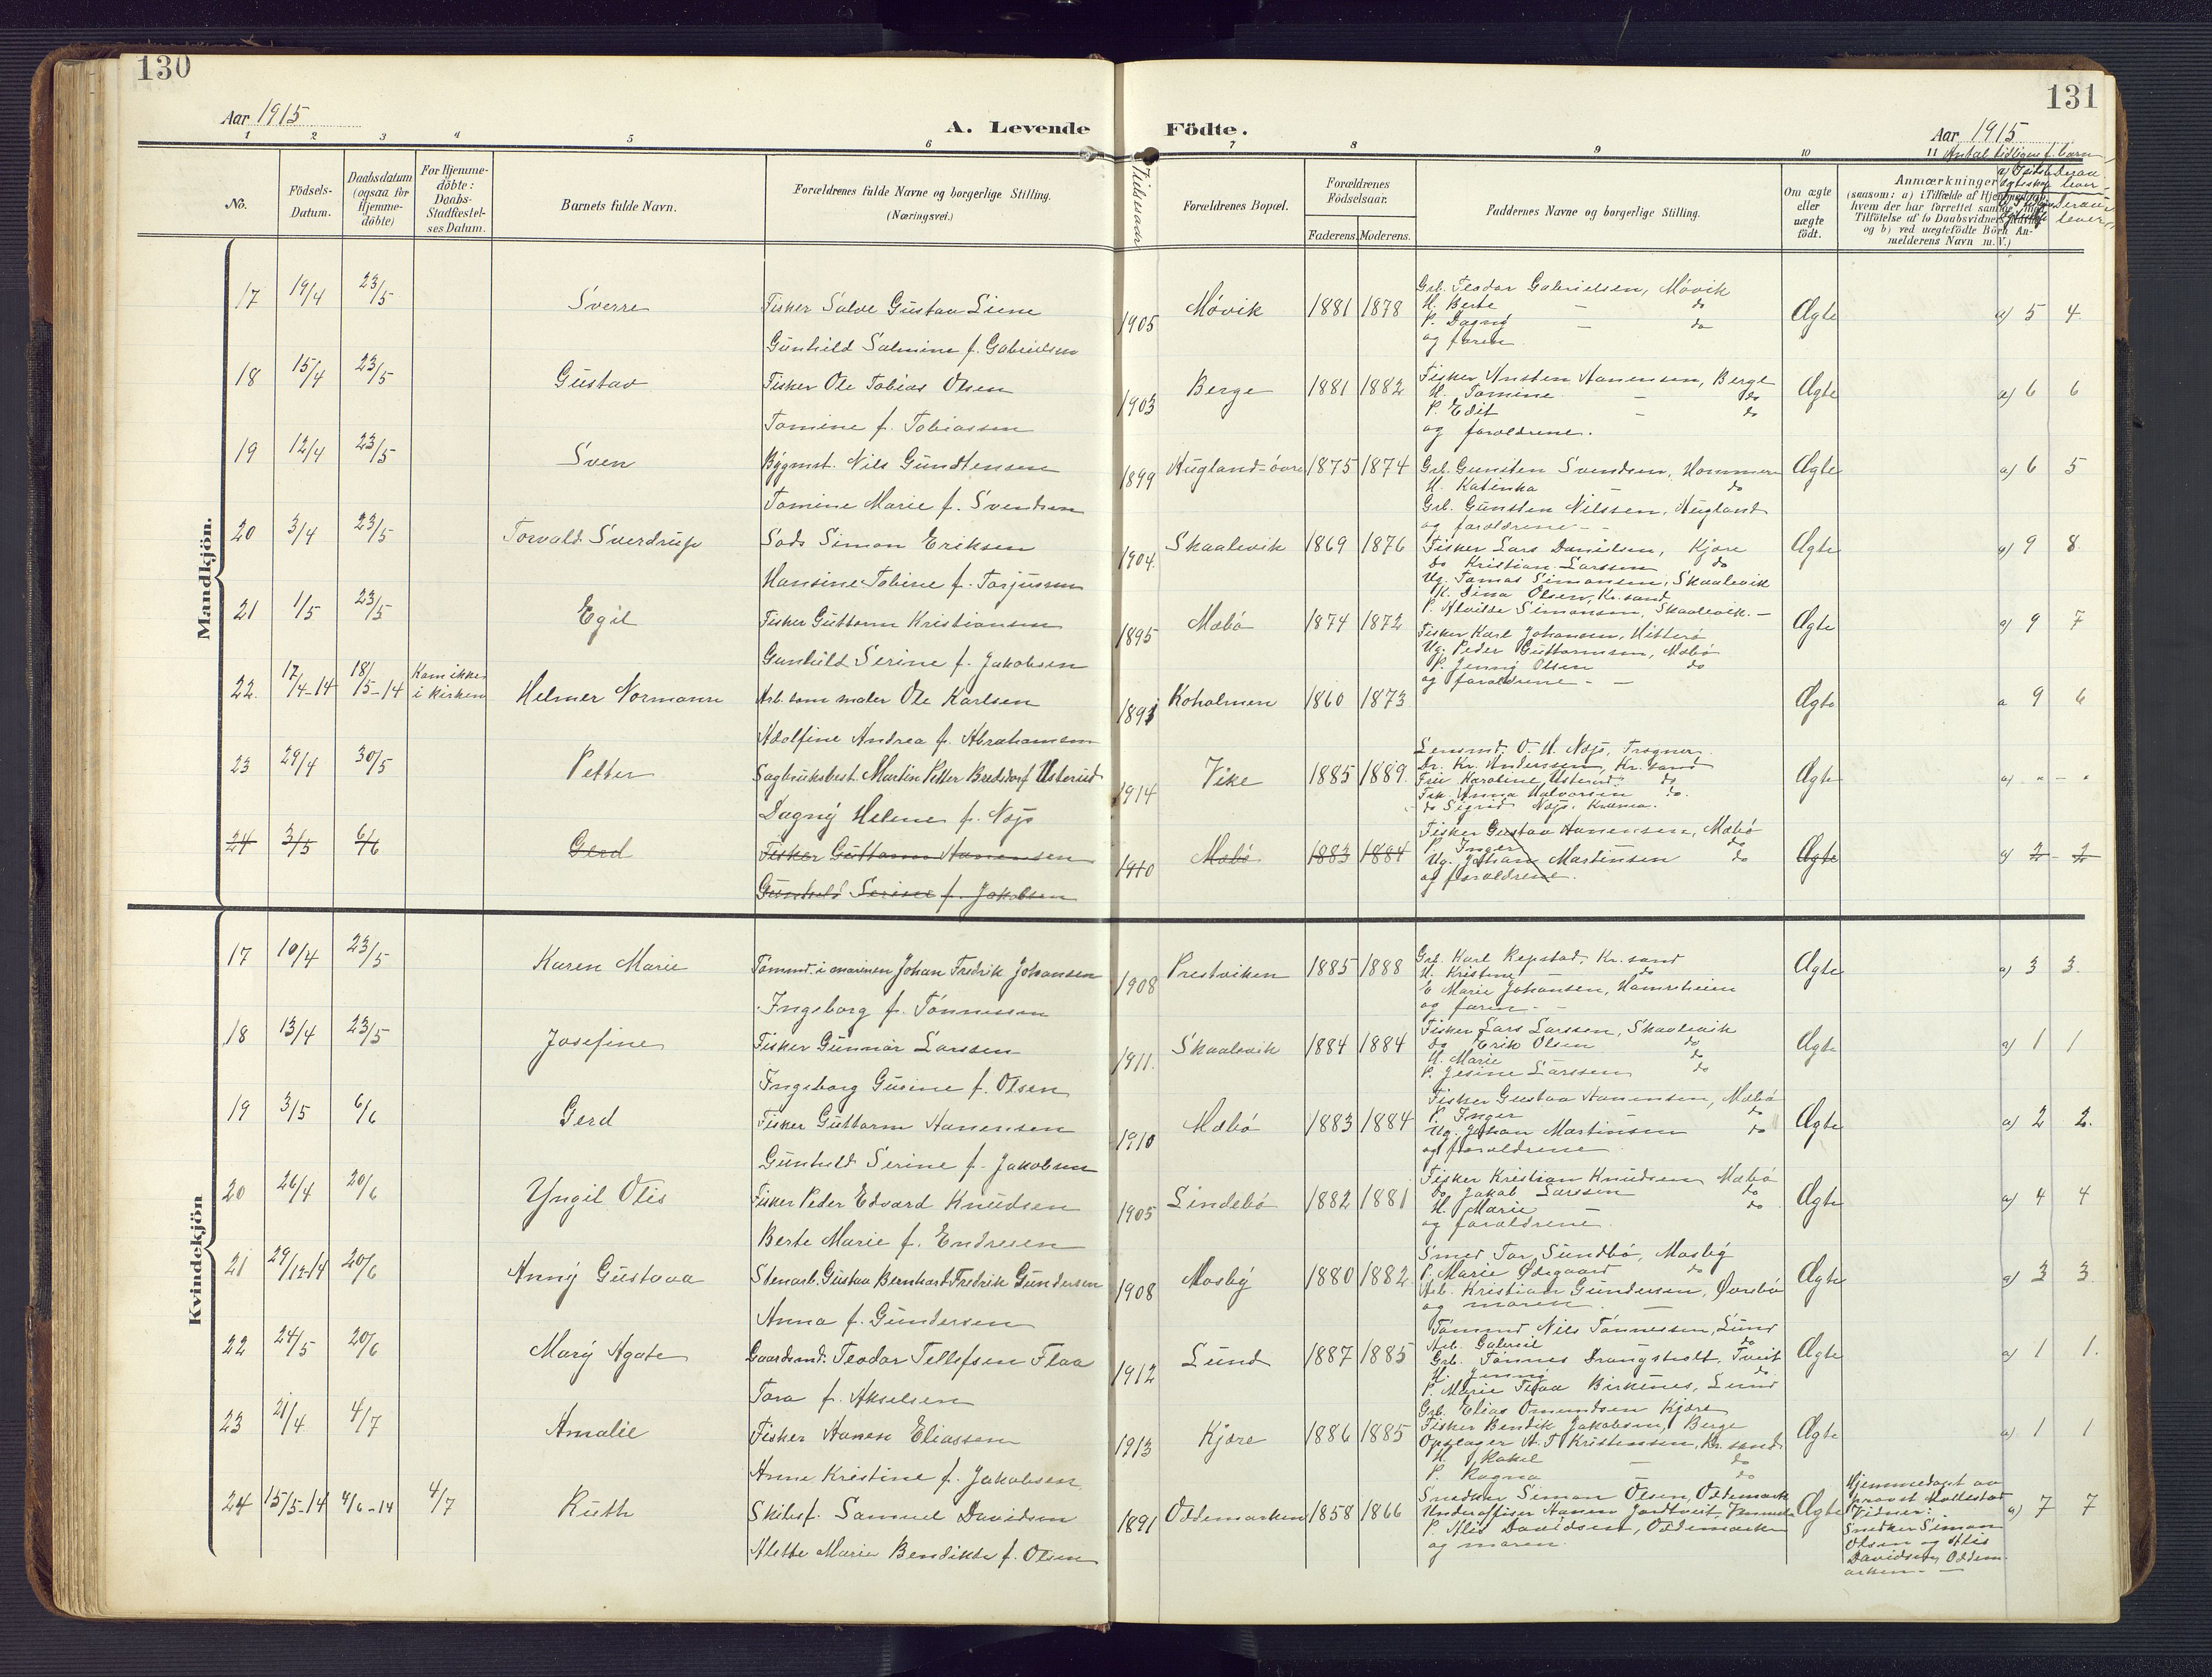 130
Aar 1915
A. Levende
1 2 3 4 5 6
No.
Födsels-
Datum.
Daabsdatum
(ogsaa for
Hjemme-
döbte)
For Hjemme-
döbte:
Daabs-
Stadfæstel-
ses Datum.
Barnets fulde Navn.
Forældrenes fulde Navne og borgerlige Stilling.
(Næringsvei.)
Mandkjön.
17 19/4 23/5 Sverre Fisker Salve Gustav Liene
Gunhild Salmine f. Gabrielsen
18 15/4 23/5 Gustav Fisker Ole Tobias Olsen
Tomine f. Tobiassen
19 12/4 23/5 Sven Bygmst. Nils Gundtensen
Tomine Marie f. Svendsen
20 3/4 23/5 Torvald Sverdrup Lods Simon Eriksen
Hansine Tobine f. Torjussen
21 1/5 23/5 Egil Fisker Guttorm Kristiansen
Gunhild Serine f. Jakobsen
22. 17/4-14 18/5-14 Kom ikke i kirken Helmer Normann Arb. som maler Ole Karlsen
Adolfine Andrea f. Abrahamsen
23 29/4 30/5 Petter Sagbruksbest. Martin Petter Bredsdorf Usterud
Dagny Helene f. Næjs
24 3/5 6/6 Gerd Fisker Guttorm Hanensen
Gunhild Serine f. Jakobsen
Kvindekjön
17 10/4 23/5 Karen Marie Tömmd. i marinen Johan Fredrik Johansen
Ingeborg f. Tönnessen
18 13/4 23/5 Josefine Fisker Gunnar Larssen
Ingeborg Gusine f. Olsen
19 3/5 6/6 Gerd Fisker Guttorm Hanensen
Gunhild Serine f. Jakobsen
20 26/4 20/6 Yngil Otis Fisker Peder Edvard Knudsen
Berte Marie f. Endresen
21 29/12-14 20/6 Anny Gustava Stenarb. Gustav Bernhard Fredrik Gundersen
Anna f. Gundersen
22 24/5 20/6 Mary Agate Gaardsmd. Teodor Tellefsen Flaa
Tora f. Akselsen
23 21/4 4/7 Amalie Fisker Hanen Eliassen
Anne Kristine f. Jakobsen
24 15/5-14 4/6-14 4/7 Ruth Skibsf. Samuel Davidsen
Alette Marie Bendikte f. Olsen
131
Födte.
Aar 1915
7 8 9 10 11
Antal tidligere f. barn
Forældrenes Bopæl.
Forældrenes
Födselsaar.
Faderens. Moderens.
Faddernes Navne og borgerlige Stilling.
Om ægte
eller
uægte
födt.
Anmærkninger
1905 Møvik 1881 1878 Grb. Teodor Gabrielsen, Møvik
H. Berte - do
P. Dagny - do
og faren. Ægte a) 5 4
1903 Berge 1881 1882 Fisker Ansten Hanensen, Berge
H. Tomine - do
P. Edit - do
og forældrene. Ægte a) 6 6
1899 Hugland-övre 1875 1874 Grb. Gunsten Svendsen, Hommeren
H. Katinka - do
Grb. Gunsten Nilssen, Hugland
og forældrene Ægte a) 6 5
1904. Skaalevik 1869 1876 Fisker Lars Danielsen, Kjære
do Kristian Larssen do
Ug. Tomas Simonsen, Skaalevik
H. Dina Olsen, Kr.sand
P. Alvilde Simonsen, Skaalevik. Ægte a) 9 8
1895 Mæbö 1874 1872 Fisker Karl Johansen, Hitterö
Ug. Peder Guttormsen, Mæbö
P. Jenny Olsen do
og forældrene Ægte a) 9 7
1893 Koholmen 1860 1873 Ægte a 9 6
1914 Vike 1885 1889. Lensmd. O. H. Næjs, Tragner.
Dr. Kr. Anderssen, Kr. sand
Fru Karoline Usterud do
Frk. Anna Halvorsen do.
do Sigrid Næjs, Kr.ania. Ægte a) " - "
1910 Mæbö 1883 1884 Fisker Gustav Hanensen, Mæbö
P. Inger do
Ug. Johan Martinsen do
og forældrene. Ægte a) 2 - 2
1908 Prestviken 1885 1888 Grb. Karl Repstad, Kr. sand
H. Kristine do
E Marie Johansen, Hamreheien
og faren Ægte a) 3 3.
1911. Skaalevik 1884 1884 Fisker Lars Larssen, Skaalevik
do Erik Olsen do
H. Marie do
P. Jesine Larssen do Ægte a) 1 1
1910 Mæbö 1883 1884 Fisker Gustav Hanensen, Mæbö
P. Inger do
Ug. Johan Martinsen do
og forældrene Ægte a) 2 2.
1905 Lindebö 1882 1881 Fisker Kristian Knudsen Mæbö
do Jakob Larssen do
H. Marie - do
og forældrene. Ægte a) 4 4
1908 Mosby 1880 1882 Smed Tor Sundbö, Mosby
P. Marie Ødegaard do
Arb. Kristian Gundersen, Øvrebö
og moren. Ægte a) 3 3.
1912 Lund 1887 1885 Tömmd Nils Tönnessen, Lund
Arb. Gabriel do
Grb. Tönnes Drangsholt, Tveit
H. Jenny do
P. Marie Teodora Birkenes, Lund Ægte a) 1 1.
1913 Kjære 1886 1885 Grb. Elias Omundsen Kjære
Fisker Bendik Jakobsen, Berge
Opslager A. T. Kristenssen, Kr. sand
H. Rakel - do
P. Ragna - do Ægte a) 1 1
1891 Oddemarken 1858 1866 Snedker Simon Olsen, Oddemark
Underoffiser Hanen Jordtveit,
P. Alis Davidsen, Oddemarken
og moren. Ægte Hjemmedöpt av
provst Mollestad
Vidner:
Snedker Simon
Olsen og Alis
Davidsen, Oddem-
arken. a) 7 7